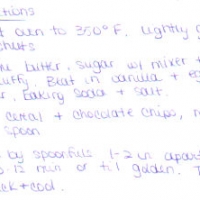 ctions
t oven to 350° F. Lightly g
sheets
butter, sugar w/ mixer t
fluffy. Beat in vanilla + eg
r, baking soda + salt.
cereal + chocolate chips, m
spoon
by spoonfuls 1-2 in apart
12 min or til golden. T
ck + cool.